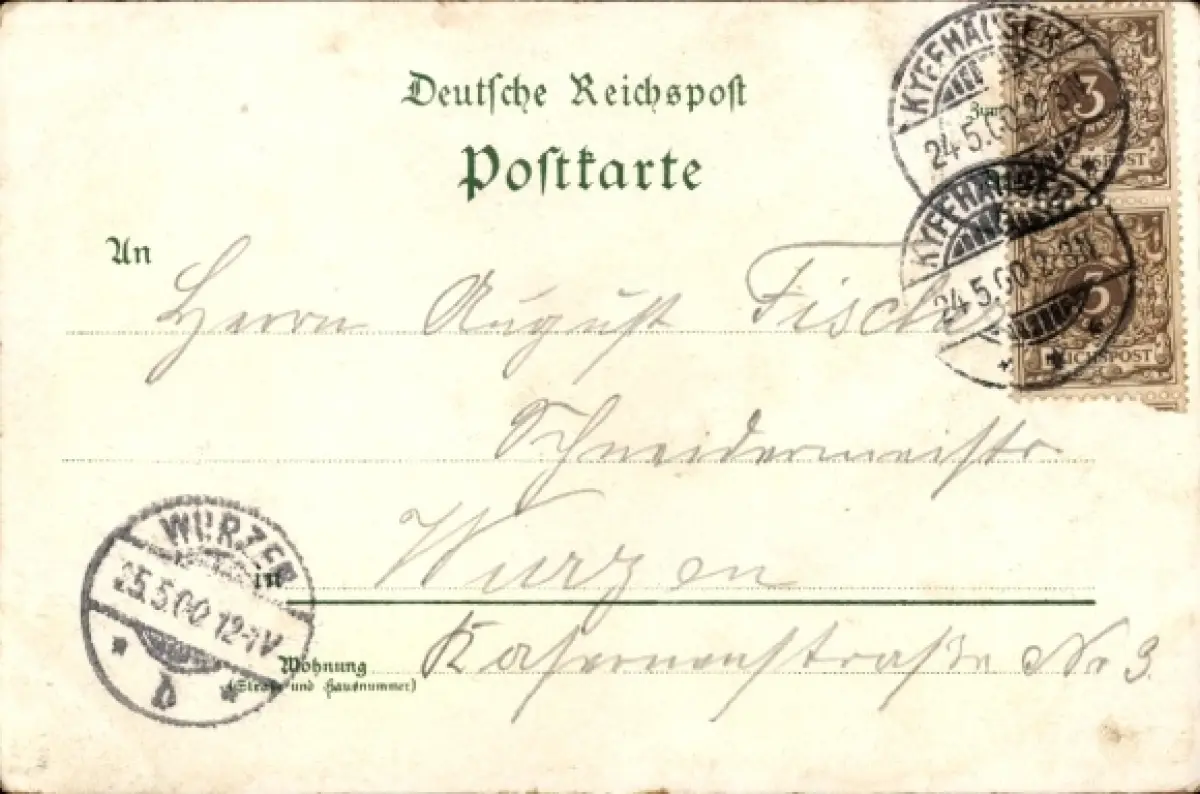 Deutsche Reichspost
Postkarte
KYFFHÄUSER
24.5.00 2-3N
3
REICHSPOST
KYFFHÄUSER
24.5.00 2-3N
3
REICHSPOST
An
Herrn August
Schneidermeistr
WURZEN
25.5.00 12-1V
b
in Wurzen
Wohnung Kasernenstraße No 3.
(Straße und Hausnummer)